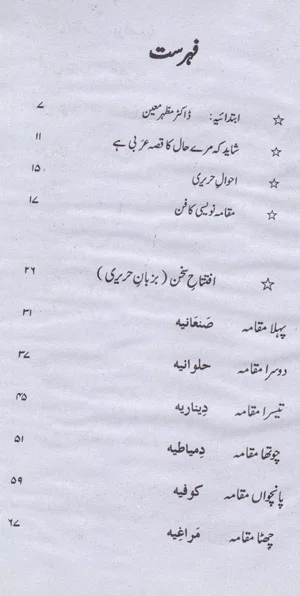 فہرست
☆ ابتدائیہ: ڈاکٹر مظہر معین ۷
☆ شاید کہ مرے حال کا قصہ عربی ہے ۱۱
☆ احوالِ حریری ۱۵
☆ مقامہ نویسی کا فن ۱۷
☆ افتتاحِ سخن (بزبانِ حریری) ۲۶
پہلا مقامہ صَنعَانیہ ۳۱
دوسرا مقامہ حلوانیہ ۳۷
تیسرا مقامہ دِیناریہ ۴۵
چوتھا مقامہ دِمیاطیہ ۵۱
پانچواں مقامہ کوفیہ ۵۹
چھٹا مقامہ مَراغِیہ ۶۷